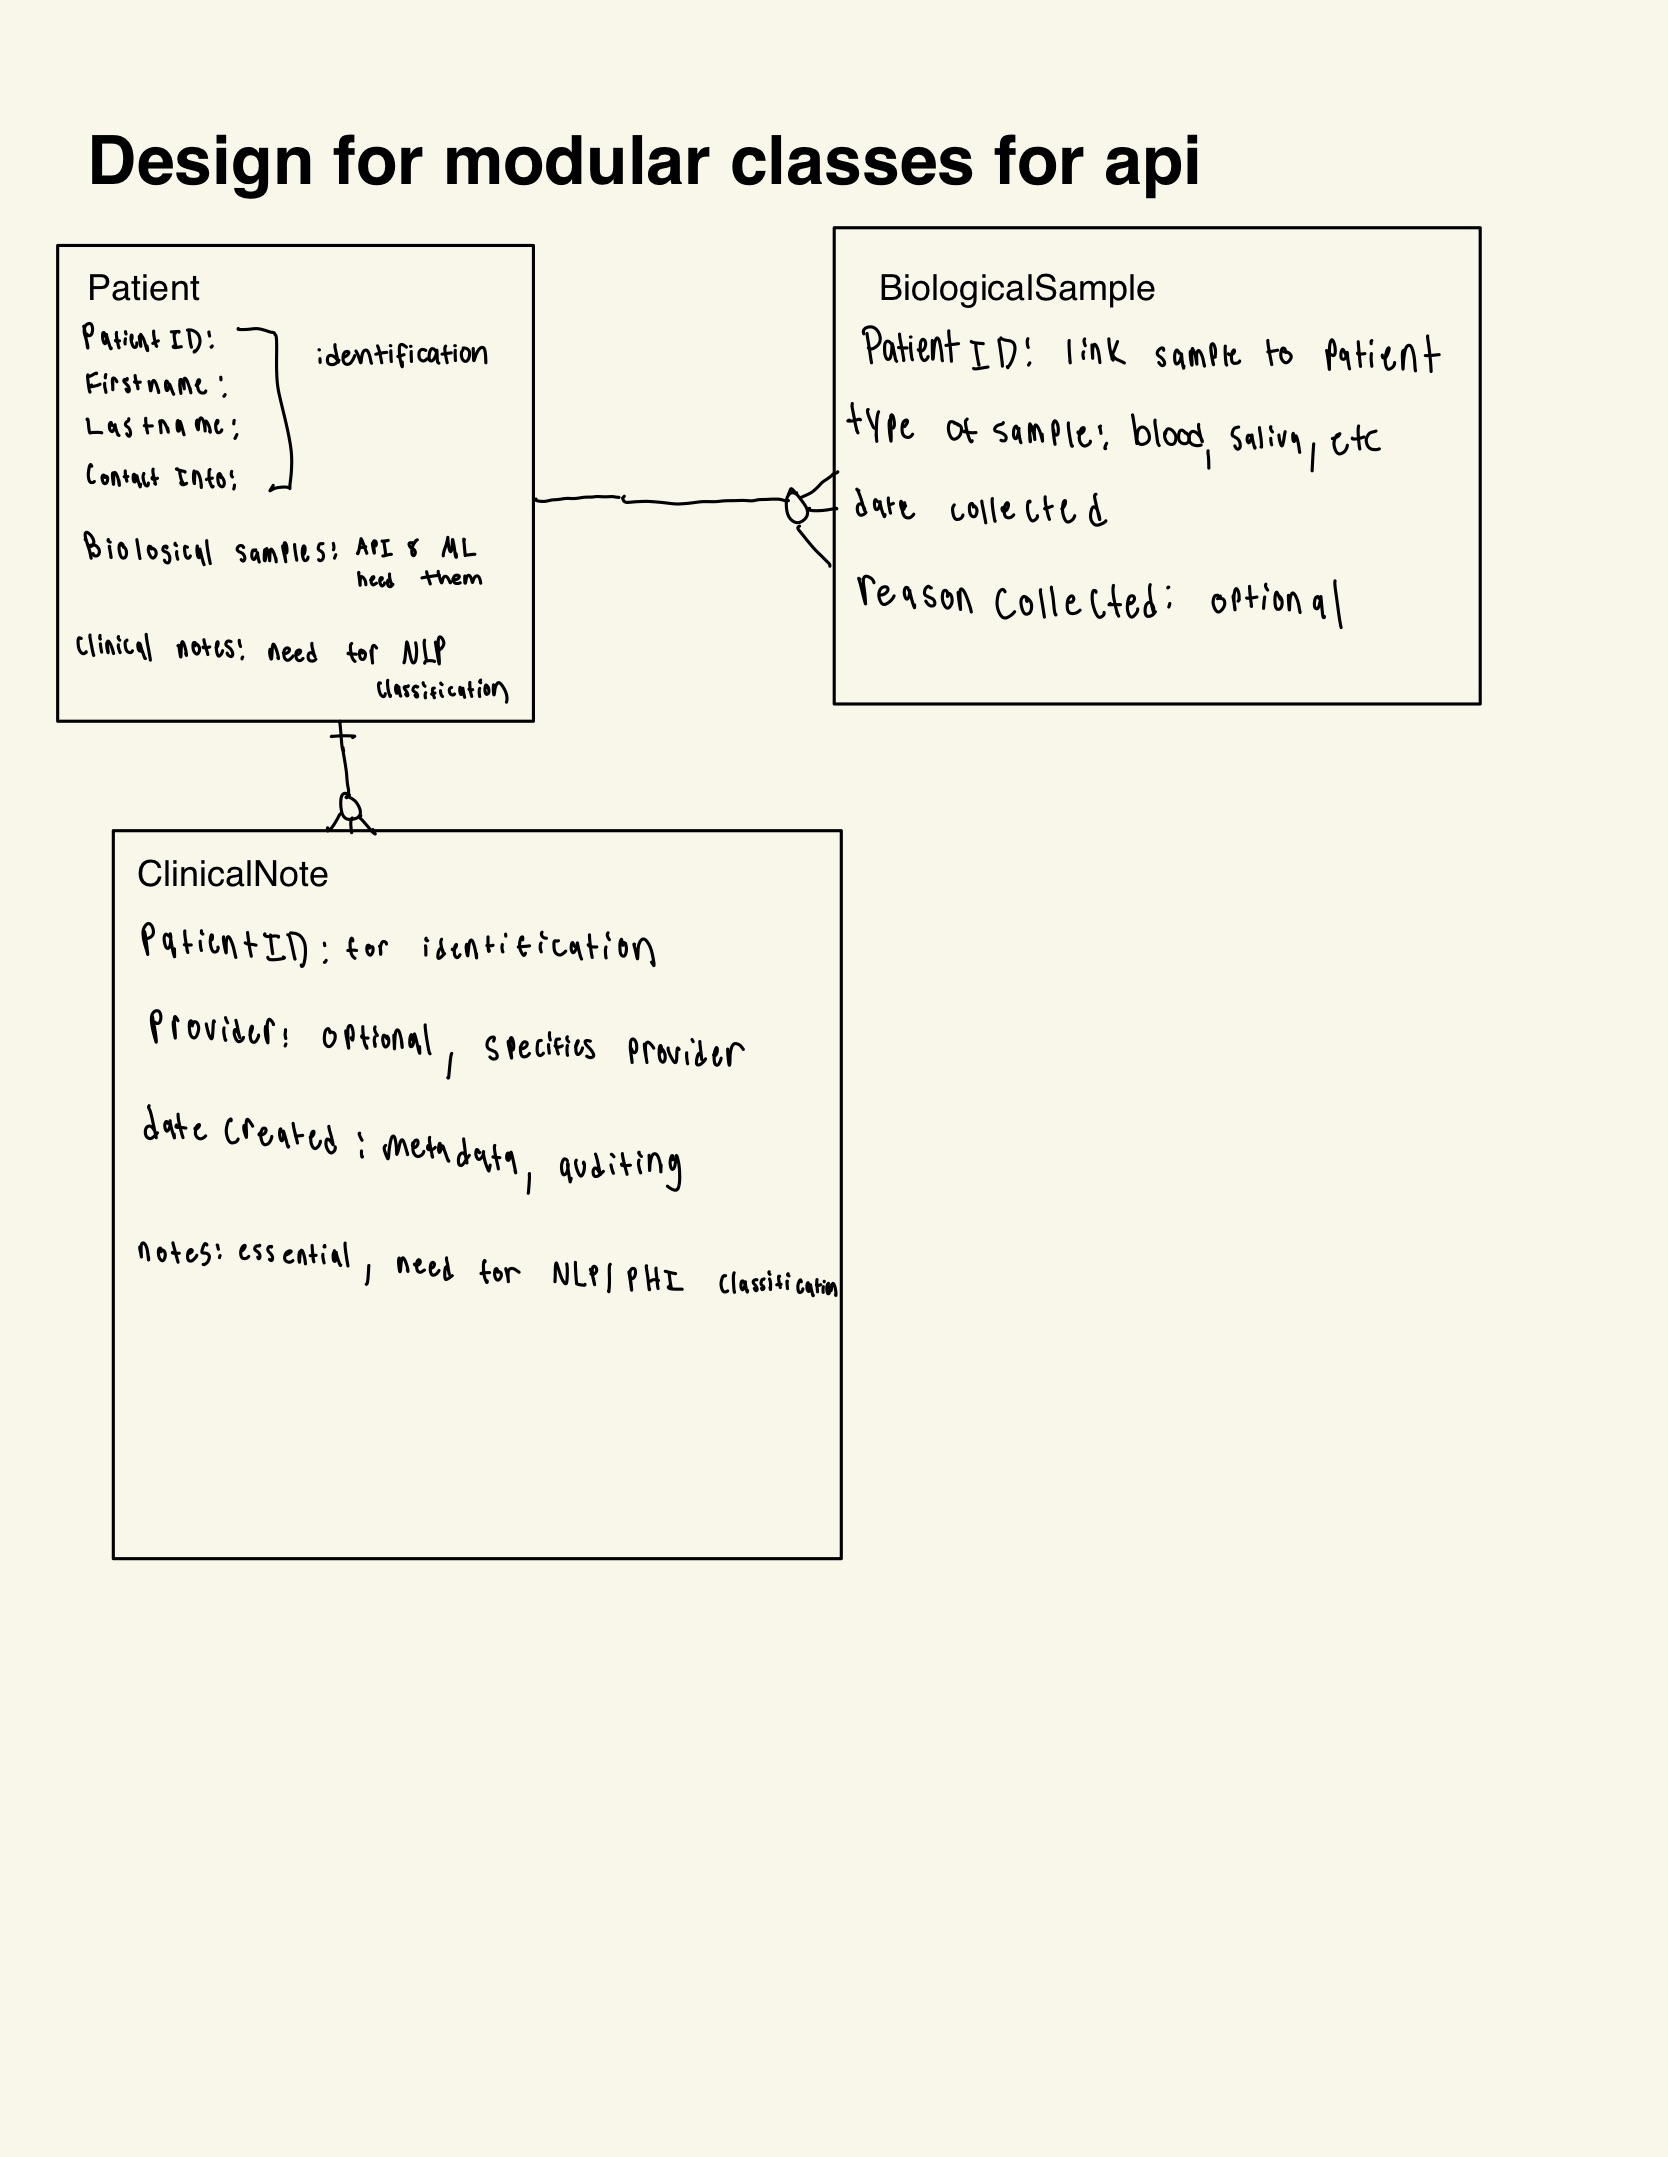 Design for modular classes for api
Patient
Patient ID:
Firstname:
Lastname:
Contact Info:
identification
Biological samples: API & ML
need them
Clinical notes: need for NLP
classification
BiologicalSample
Patient ID: link sample to patient
type of sample: blood, saliva, etc
date collected
reason collected: optional
ClinicalNote
PatientID: for identification
Provider: optional, specifies provider
date created: metadata, auditing
notes: essential, need for NLP/PHI classification